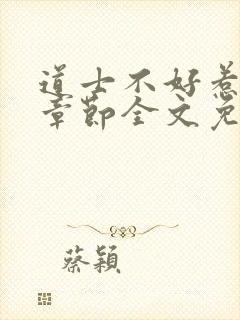 道士不好惹
章节全文免
蔡颖